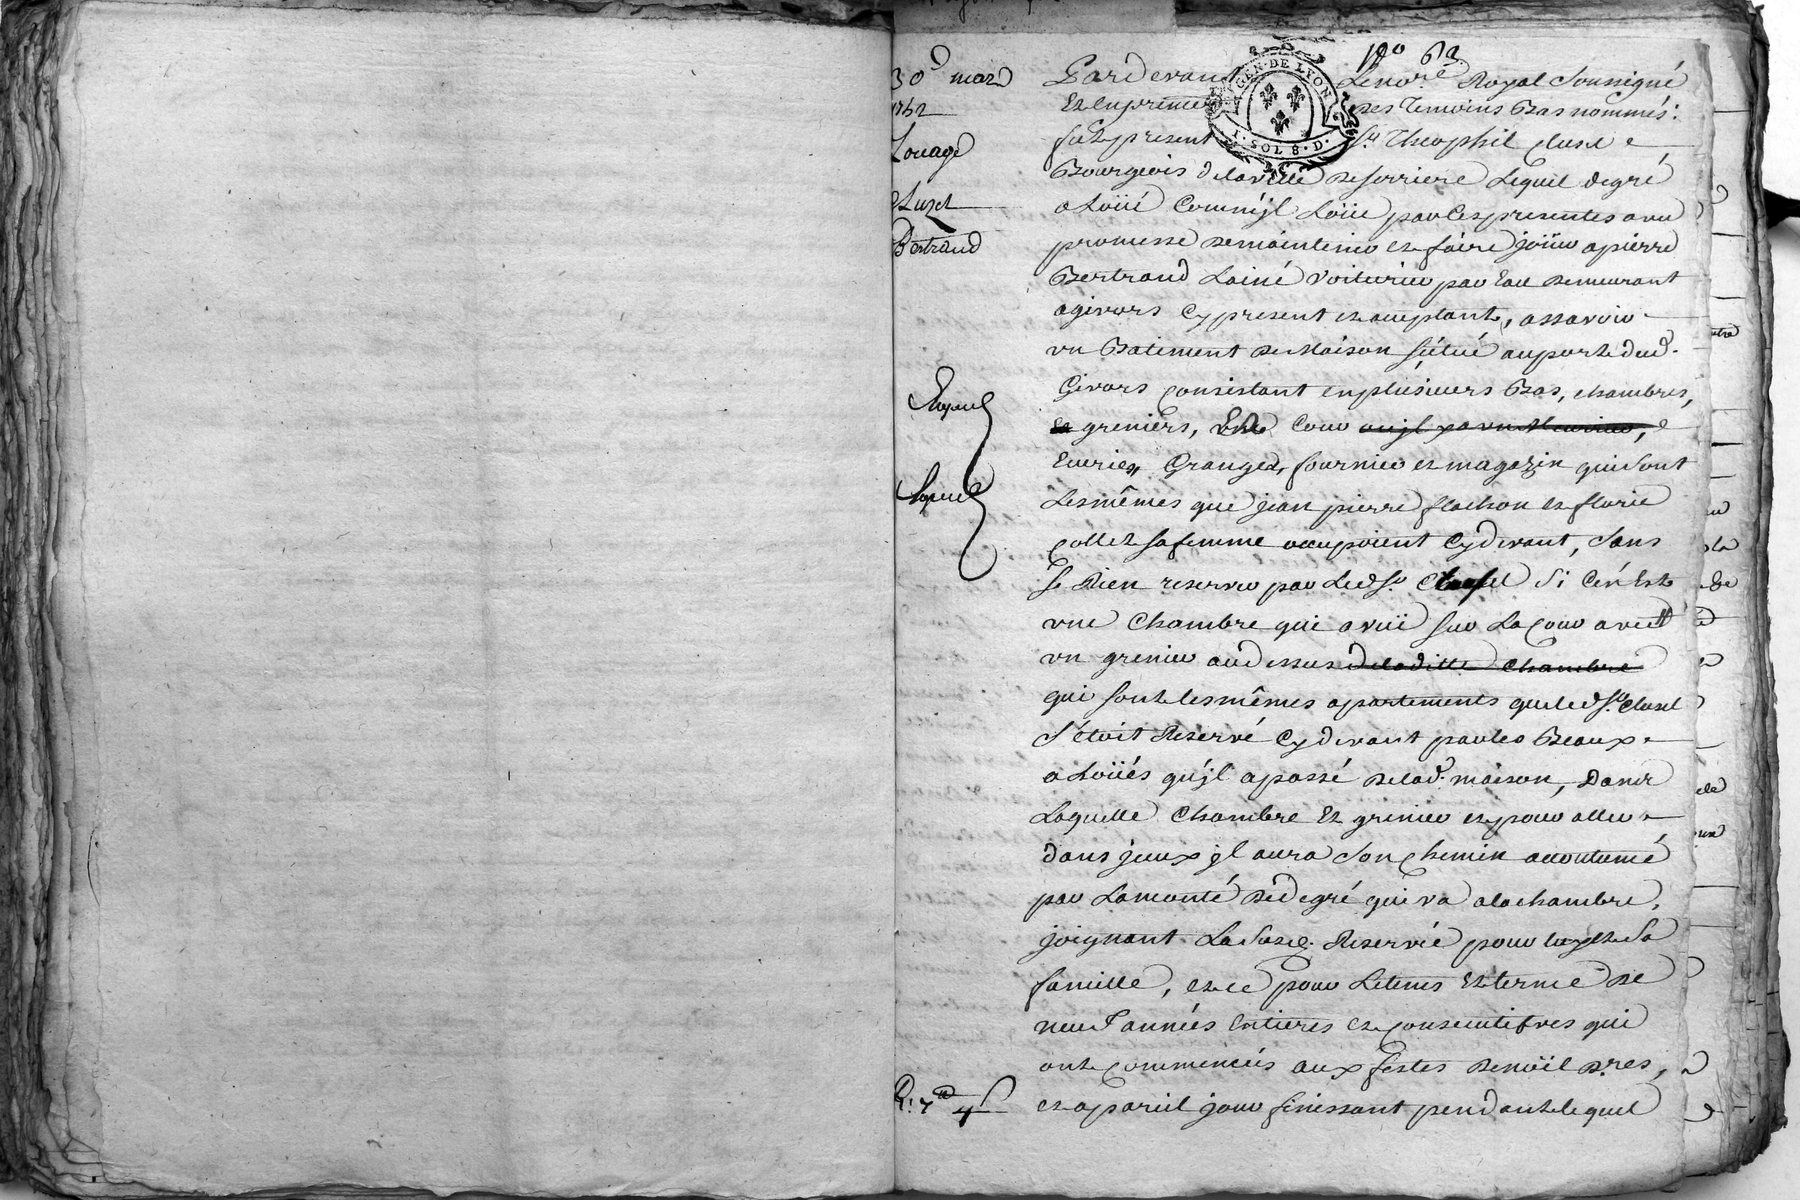 No 63.
30e mars
1752
Louage
Clusel
Bertrand
Pardevant Le nore. Royal Soussigné
GEN. DE LYON
I. SOL 8. D.
Et en presence des Temoins Bas nommés:
fut present Sr. Theophil Clusel
Bourgeois de la ville de Serriere Lequel de gré
a Loüé Comm'jl Loüe par Ces presentes avec
promesse de maintenir et faire joüir a pierre
Bertrand Lainé Voiturier par Eau demeurant
a givors Cy present et acceptant, assavoir
un Batiment de Maison Sitüé au port dud.
Givors Consistant en plusieurs Bas, chambres,
et greniers, Cour
Ecuries, Granges, fournier et magazin qui sont
Les mêmes que jean pierre flachon et florie
Collet sa femme occupoient Cydevant, Sans
Se Rien reserver par Led. Sr. Clusel Si Cen'Est
une Chambre qui a vüe Sur La Cour avec
un grenier au dessus de laditte Chambre
qui sont les mêmes apartements que led. Sr. Clusel
S'étoit Reservé Cydevant par les Beaux
a Loüés qu'jl a passé de lad. maison, Dans
Laquelle Chambre Et grenier et pour aller
dans jceux jl aura Son Chemin accoutumé
par La monté de degré qui va a la chambre,
joignant Reservée pour luy et Sa
famille, et ce pour Le tems Et terme de
neuf années Entieres et Consecutifves qui
ont Commencées aux festes de noël d.res,
et a pareil jour finissant pendant lequel